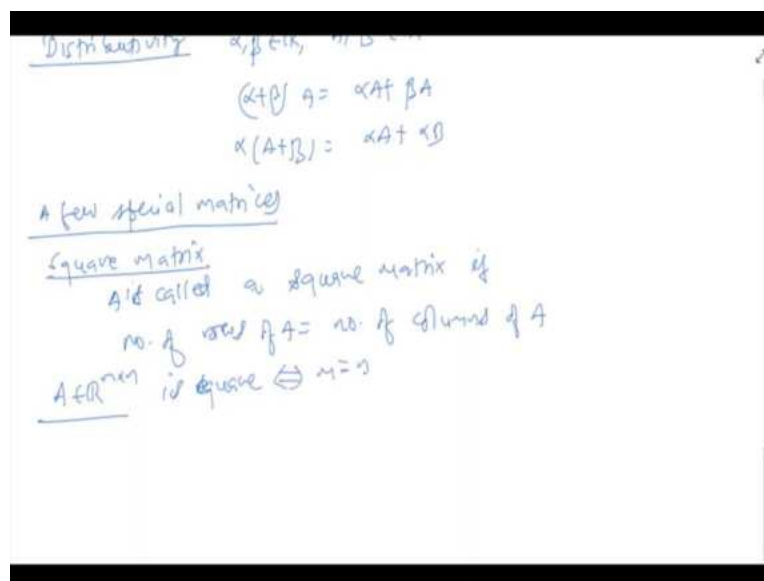 Distributivity α, β ∈ ℝ,
(α+β) A = αA + βA
α(A+B) = αA + αB
A few special matrices
Square matrix
A is called a square matrix if
no. of rows of A = no. of columns of A
A∈ℝ^{m×n} is square ⇔ m=n